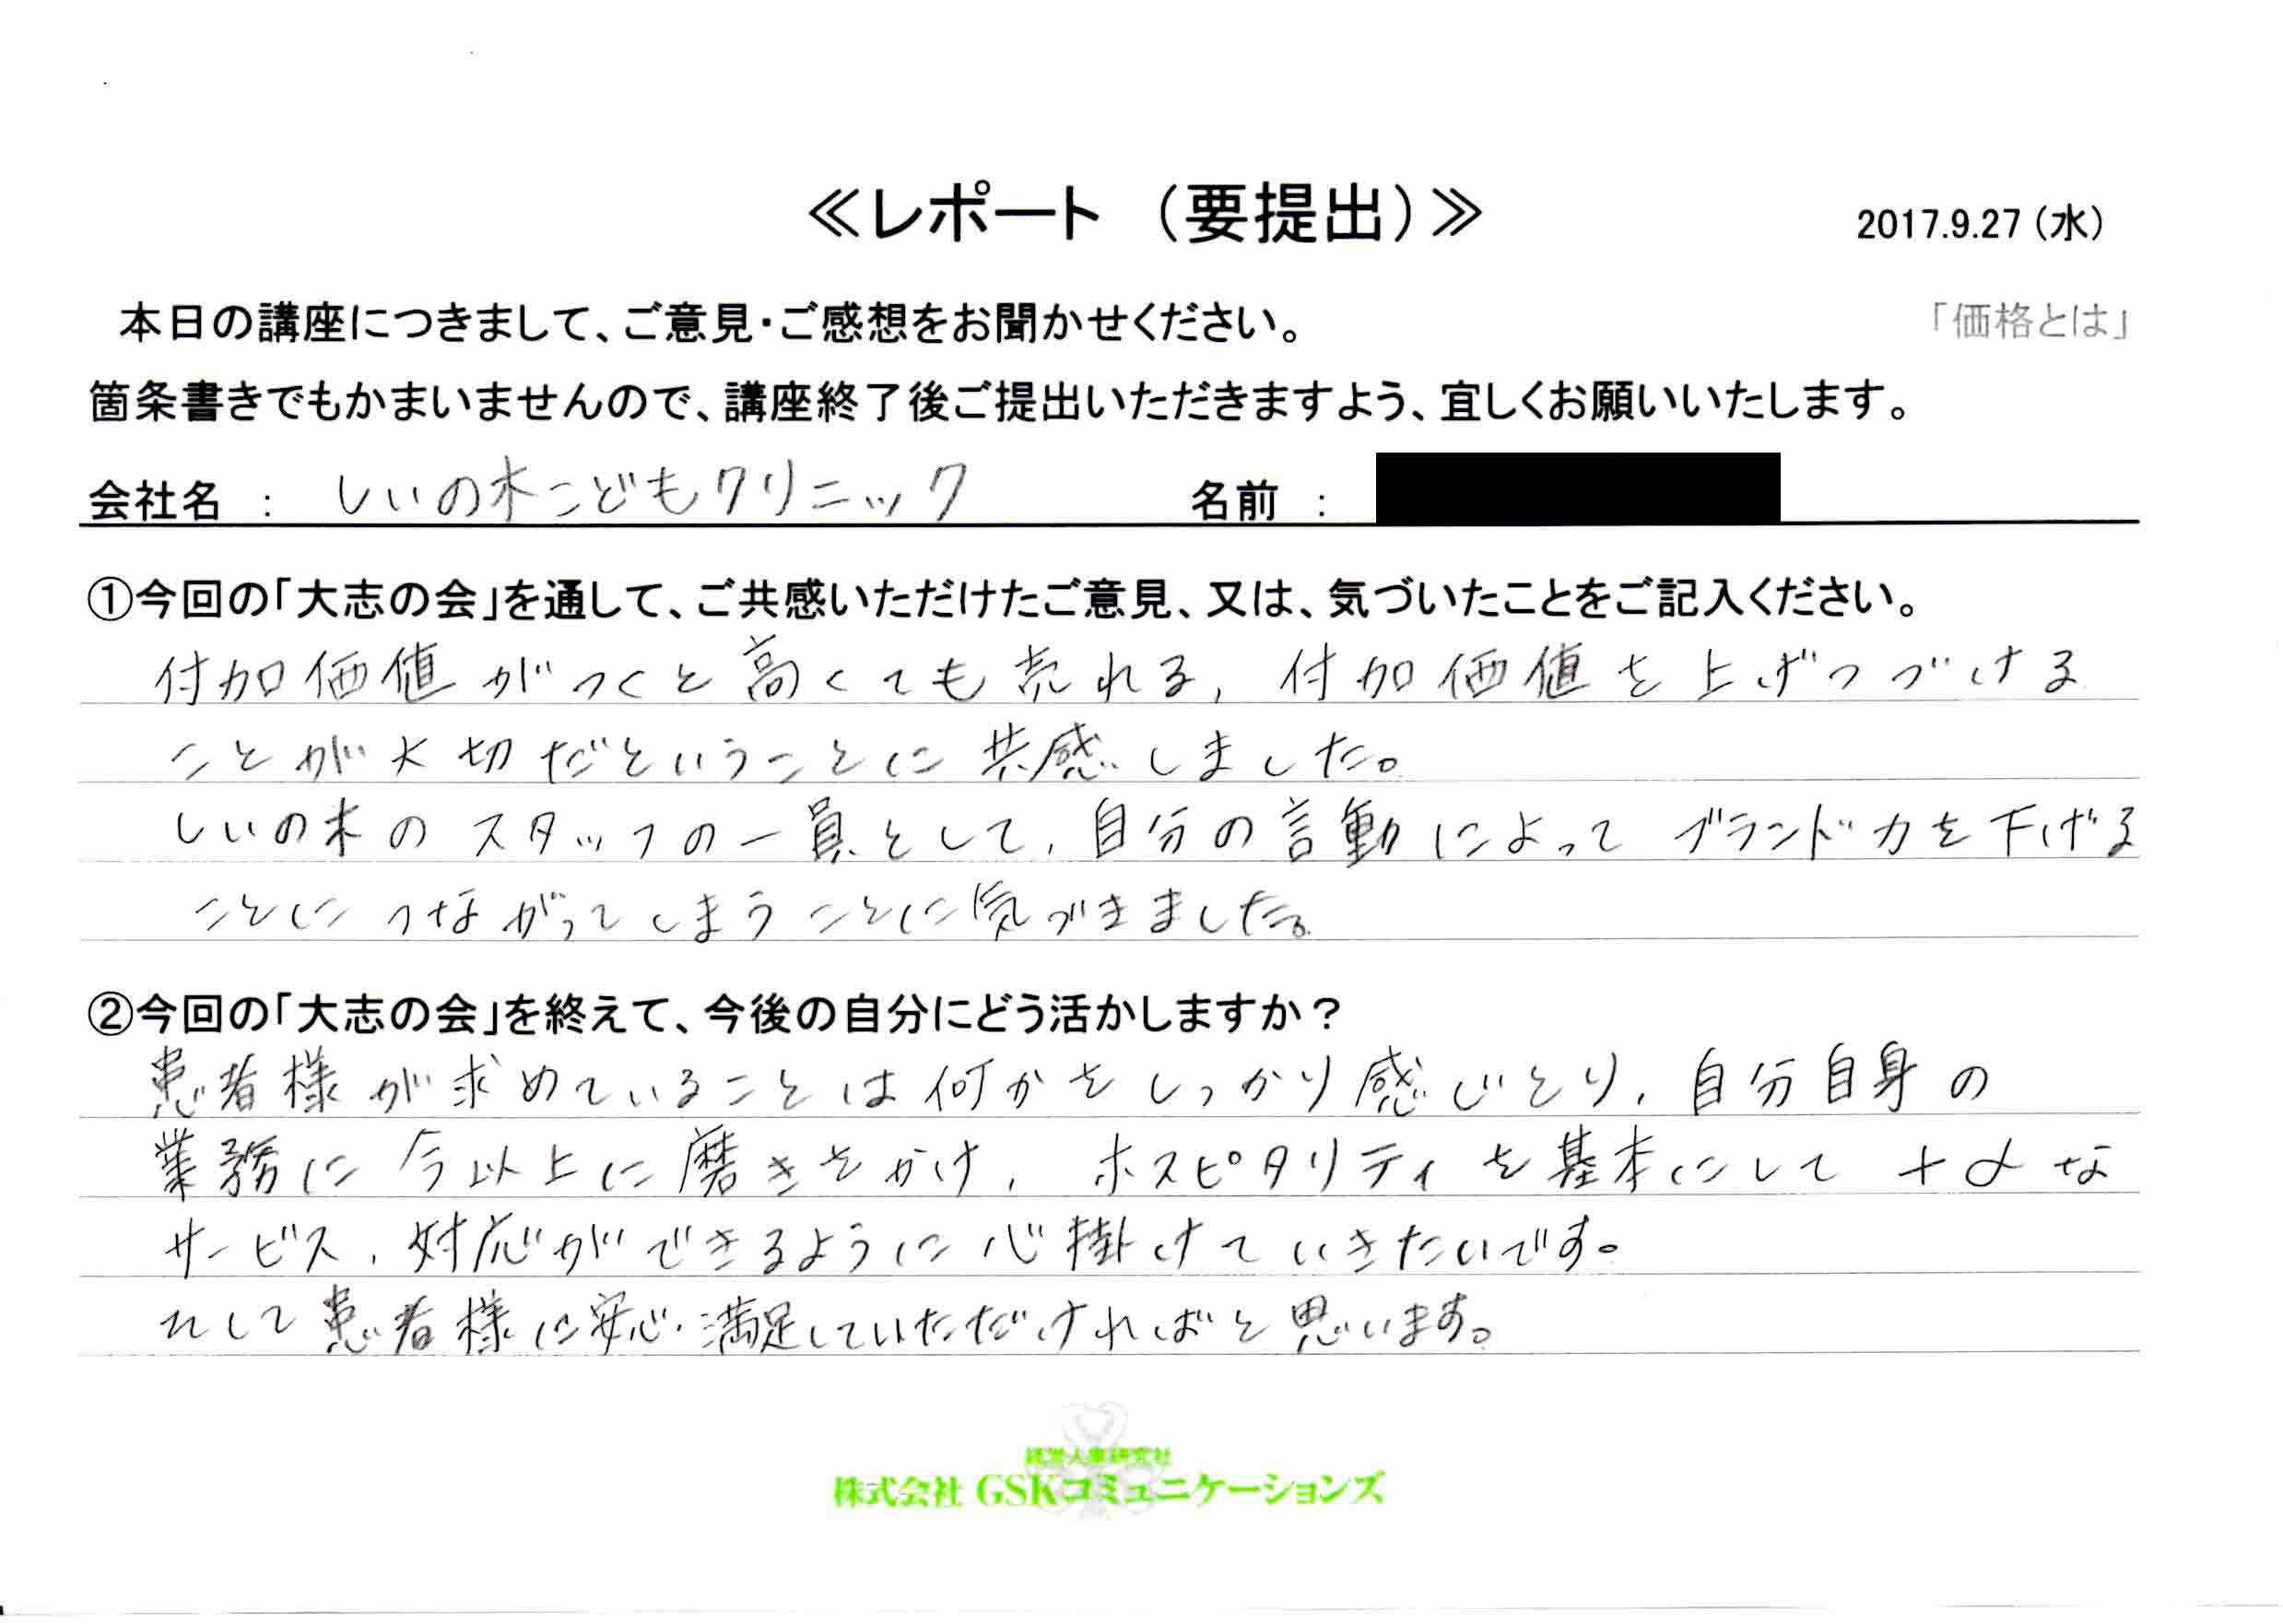 ≪レポート （要提出）≫
2017.9.27（水）
本日の講座につきまして、ご意見・ご感想をお聞かせください。
「価格とは」
箇条書きでもかまいませんので、講座終了後ご提出いただきますよう、宜しくお願いいたします。
会社名 ： しいの木こどもクリニック 名前 ：
①今回の「大志の会」を通して、ご共感いただけたご意見、又は、気づいたことをご記入ください。
付加価値がつくと高くても売れる、付加価値を上げつづける
ことが大切だということに共感しました。
しいの木のスタッフの一員として、自分の言動によってブランド力を下げる
ことにつながってしまうことに気づきました。
②今回の「大志の会」を終えて、今後の自分にどう活かしますか？
患者様が求めていることは何かをしっかり感じとり、自分自身の
業務に今以上に磨きをかけ、ホスピタリティを基本にして＋αな
サービス、対応ができるように心掛けていきたいです。
そして患者様に安心・満足していただければと思います。
経営人事研究社
株式会社 GSKコミュニケーションズ